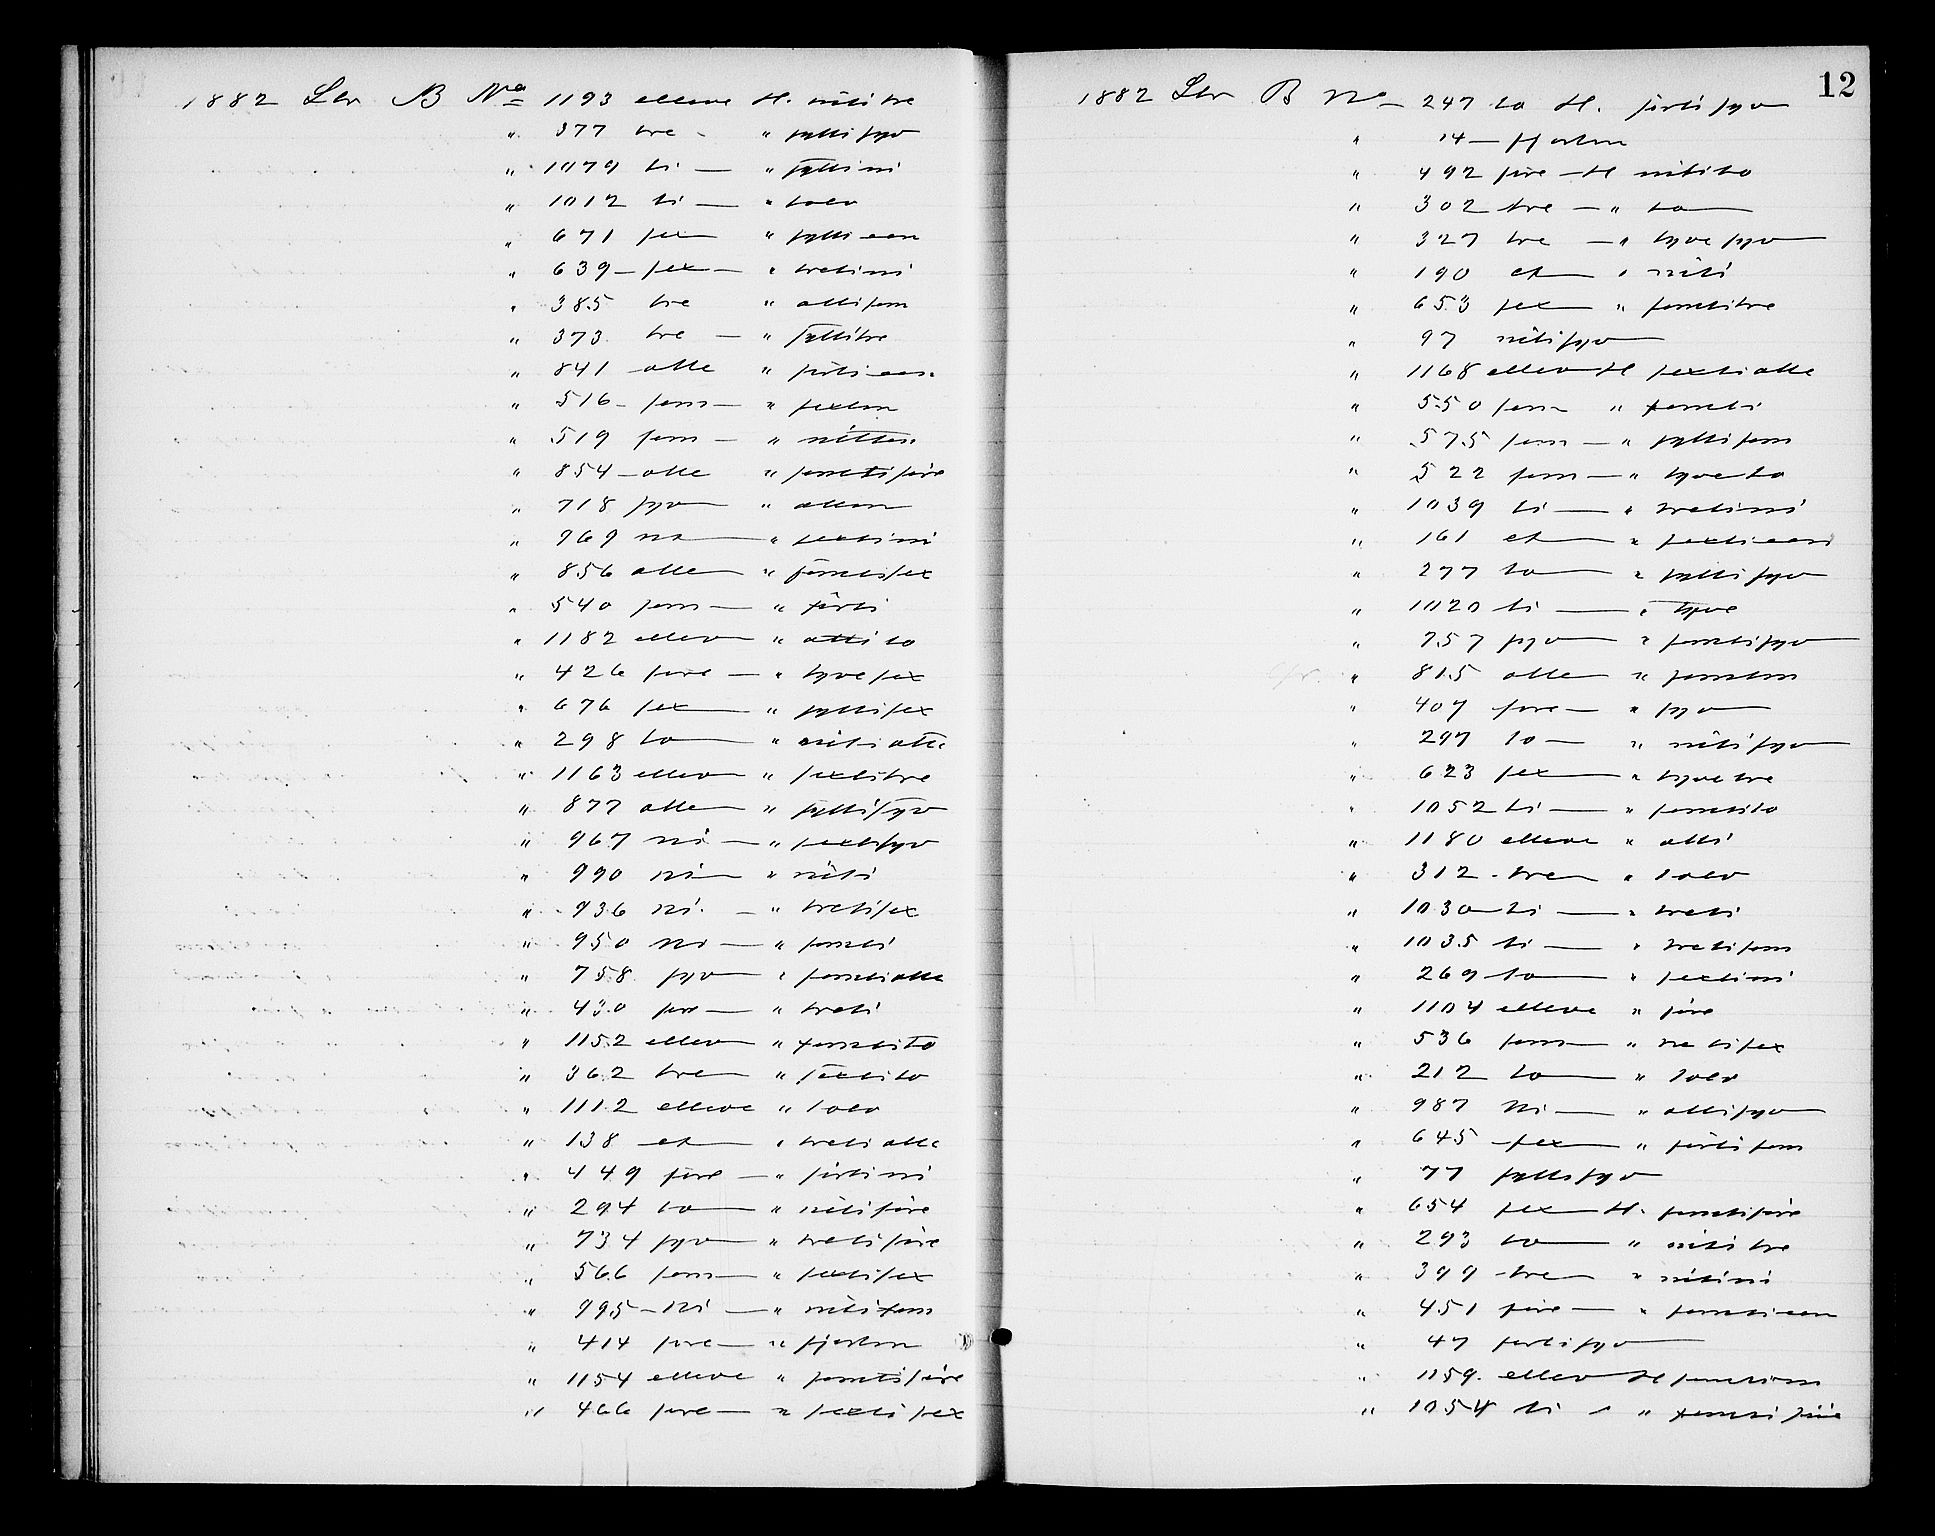 1882 Ltr B No 1193 elleve H. nititre
" 377 tre - " syttisyv
" 1079 ti — " syttini
" 1012 ti — " tolv
" 671 sex " syttieen
" 639 - sex — " tretini
" 385 tre " ottifem
" 373 tre — " syttitre
" 841 - otte " førtieen
" 516 - fem — " sexten
" 519 fem — " nitten
" 854 - otte " femtifire
" 718 syv " atten
" 969 ni " sextini
" 856 otte " femtisex
" 540 fem — " førti
" 1182 elleve " ottito
" 426 fire — " tyvesex
" 676 sex " syttisex
" 298 to " nitiotte
" 1163 elleve " sextitre
" 877 otte " syttisyv
" 967 ni — " sextisyv
" 990 ni " niti
" 936 ni. — " tretisex
" 950 ni — " femti
" 758 syv " femtiotte
" 430 fire — " treti
" 1152 elleve " femtito
" 362 tre " sextito
" 1112 elleve " tolv
" 138 et " tretiotte
" 449 fire — " førtini
" 294 to " nitifire
" 734 syv " tretifire
" 566 fem — " sextisex
" 995 - ni — " nitifem
" 414 fire — " fjorten
" 1154 elleve " femtifire
" 466 fire — " sextisex
12
1882 Ltr B No — 247 to H. førtisyv
" 14 — fjorten
" 492 fire — H nitito
" 302 tre — " to
" 327 tre — " tyvesyv
" 190 et " niti
" 653 sex " femtitre
" 97 nitisyv
" 1168 elleve H sextiotte
" 550 fem " femti
" 575 fem — " syttifem
" 522 fem — " tyveto
" 1039 ti — " tretini
" 161 et " sextieen
" 277 to " syttisyv
" 1020 ti — " tyve
" 757 syv " femtisyv
" 815 otte " femten
" 407 fire — " syv
" 297 to — " nitisyv
" 623 sex " tyvetre
" 1052 ti — " femtito
" 1180 elleve " otti
" 312 - tre " tolv
" 1030 ti — " treti
" 1035 ti — " tretifem
" 269 to " sextini
" 1104 elleve " fire
" 536 fem — " tretisex
" 212 to " tolv
" 987 ni — " ottisyv
" 645 sex " førtifem
" 77 syttisyv
" 654 sex H. femtifire
" 293 to " nititre
" 399 - tre " nitini
" 451 fire — " femtieen
" 47 førtisyv
" 1159. elleve H femtini
" 1054 ti - " femtifire